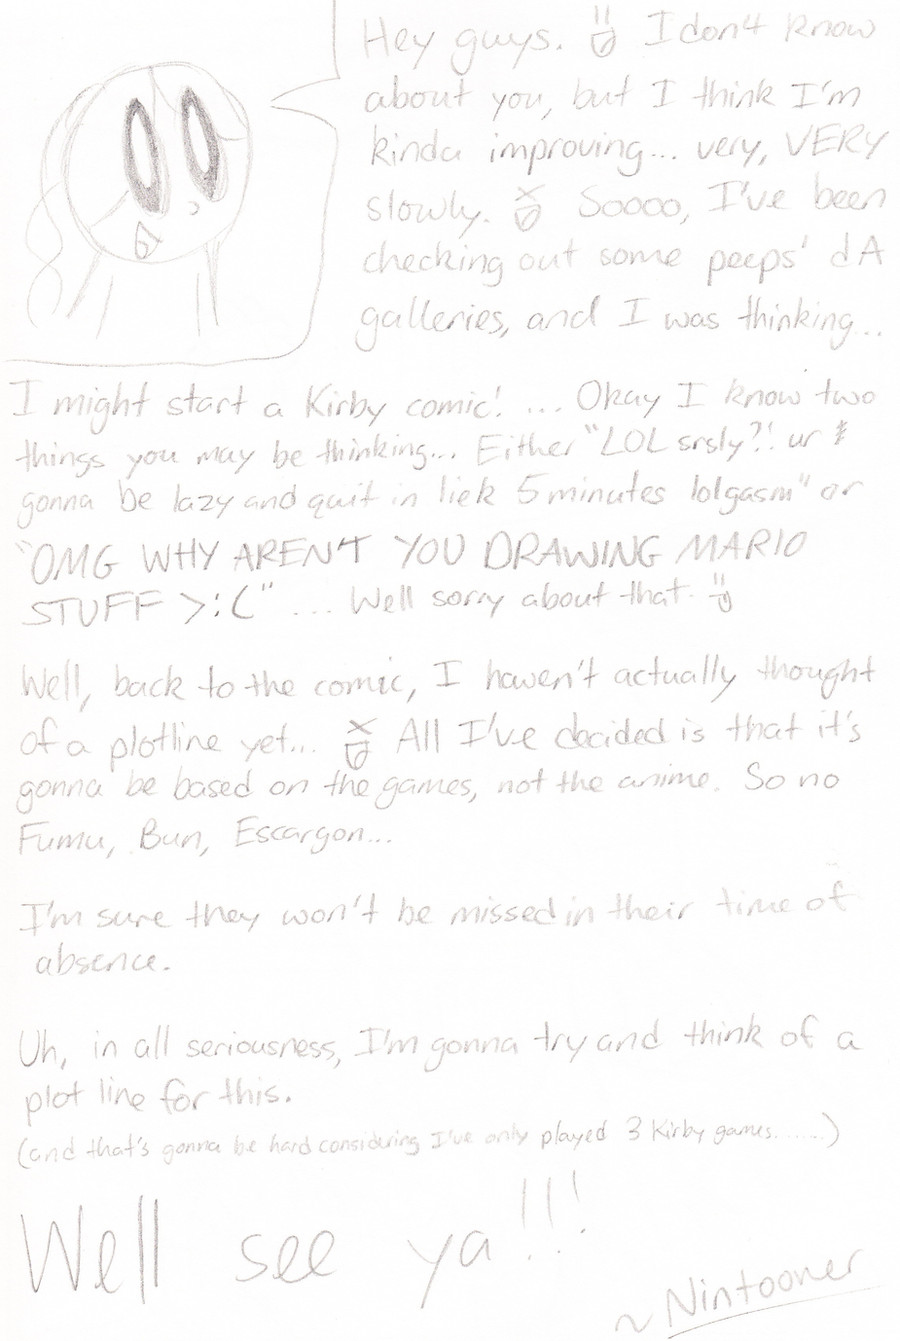 Hey guys. I don't know
about you, but I think I'm
kinda improving... very, VERY
slowly. XD Soooo, I've been
checking out some peeps' dA
galleries, and I was thinking...
I might start a Kirby comic! ... Okay I know two
things you may be thinking... Either "LOL srsly?! ur
gonna be lazy and quit in liek 5 minutes lolgasm" or
"OMG WHY AREN'T YOU DRAWING MARIO
STUFF >:(" ... Well sorry about that.
Well, back to the comic, I haven't actually thought
of a plotline yet... XD All I've decided is that it's
gonna be based on the games, not the anime. So no
Fumu, Bun, Escargon...
I'm sure they won't be missed in their time of
absence.
Uh, in all seriousness, I'm gonna try and think of a
plot line for this.
(and that's gonna be hard considering I've only played 3 Kirby games.......)
Well see ya!!!
~Nintooner